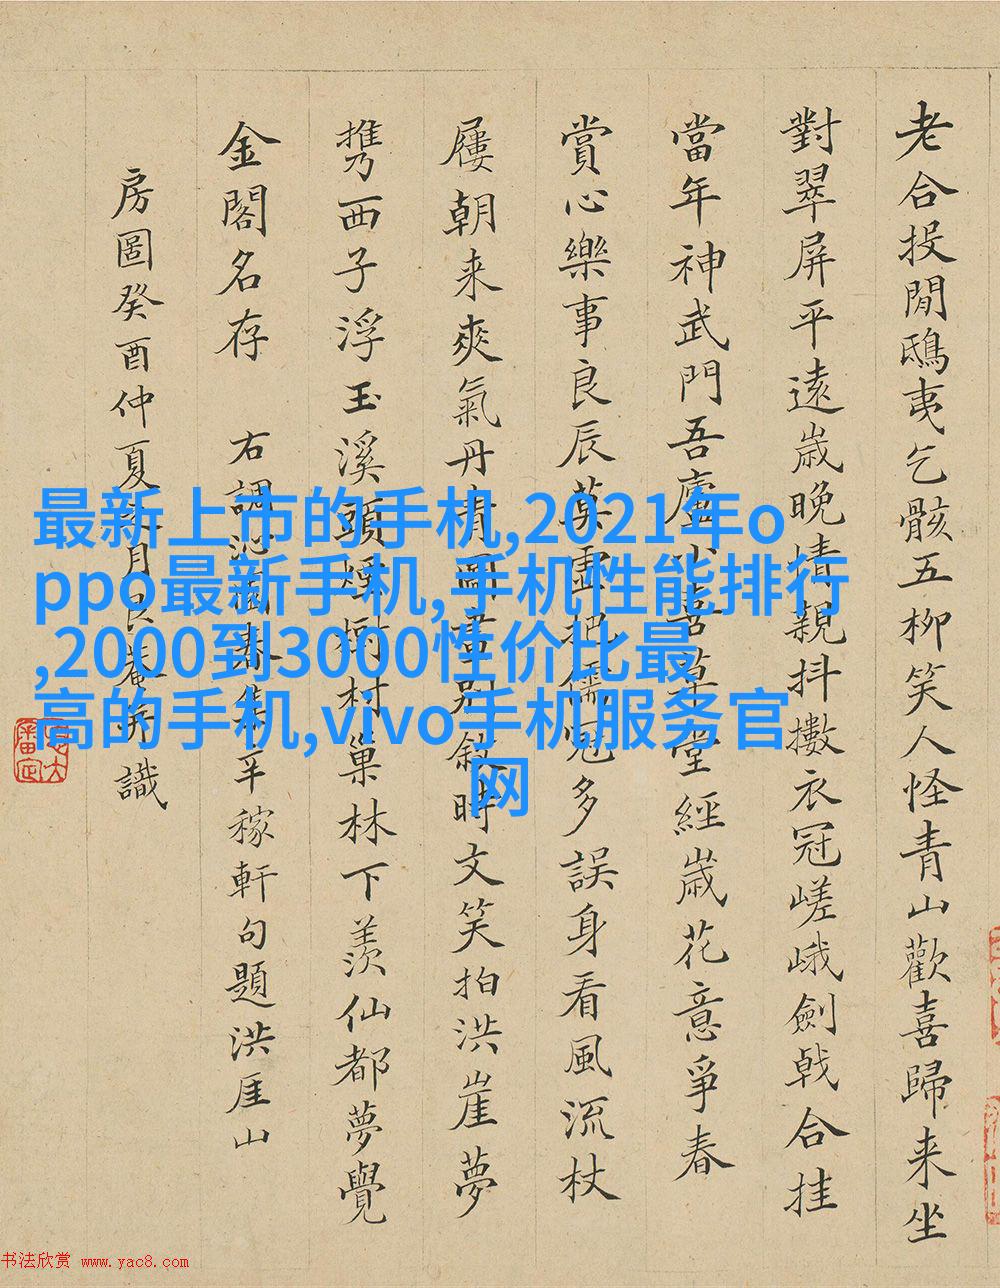 老合投閒鴟夷乞骸五柳笑人怪青山歡喜歸来坐
對翠屏平遠歳晚情親抖擻衣冠嵯峨劍戟合挂
當年神武門吾廬小喜草堂經歳花意爭春
賞心樂事良辰莫虛把儒冠多誤身看風流杖
屨朝来爽氣丹青圖畫別敘時文笑拍洪崖夢
携西子浮玉溪頭煙樹村巢林下羨仙都夢覺
金閣名存 右調沁園春集辛稼軒句題洪厓山
房圖癸酉仲夏月艮菴并識
最新上市的手机,2021年o
ppo最新手机,手机性能排行
,2000到3000性价比最
高的手机,vivo手机服务官
网
书法欣赏 www.yac8.com